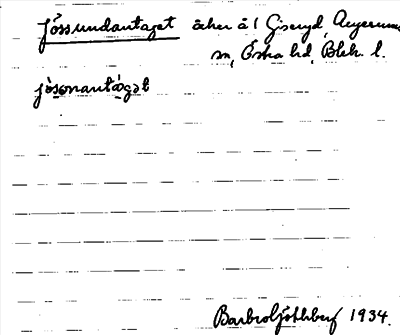 Jössundantaget åker å 1 Giseryd, Augerums
sn, Östra hd, Blek. l.
jösonantåget
Barbro Götlberg 1934.